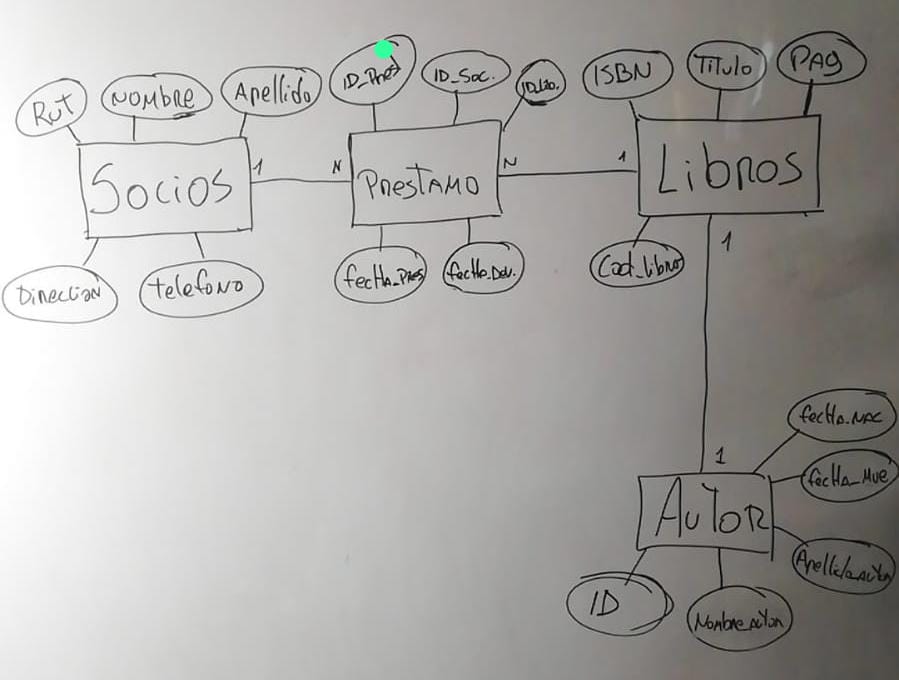 Rut
NOMBRE
Apellido
ID_Pres
ID_Soc.
ISBN
Titulo
PAG
Socios
1
N
PRESTAMO
N
1
Libros
Direccion
telefono
fecHa_PRES
fecHa_Dev.
Cod_libro
1
1
AuToR
fecHa_NAC
fecHa_Mue
Apellido_AuTor
ID
Nombre_AuTor